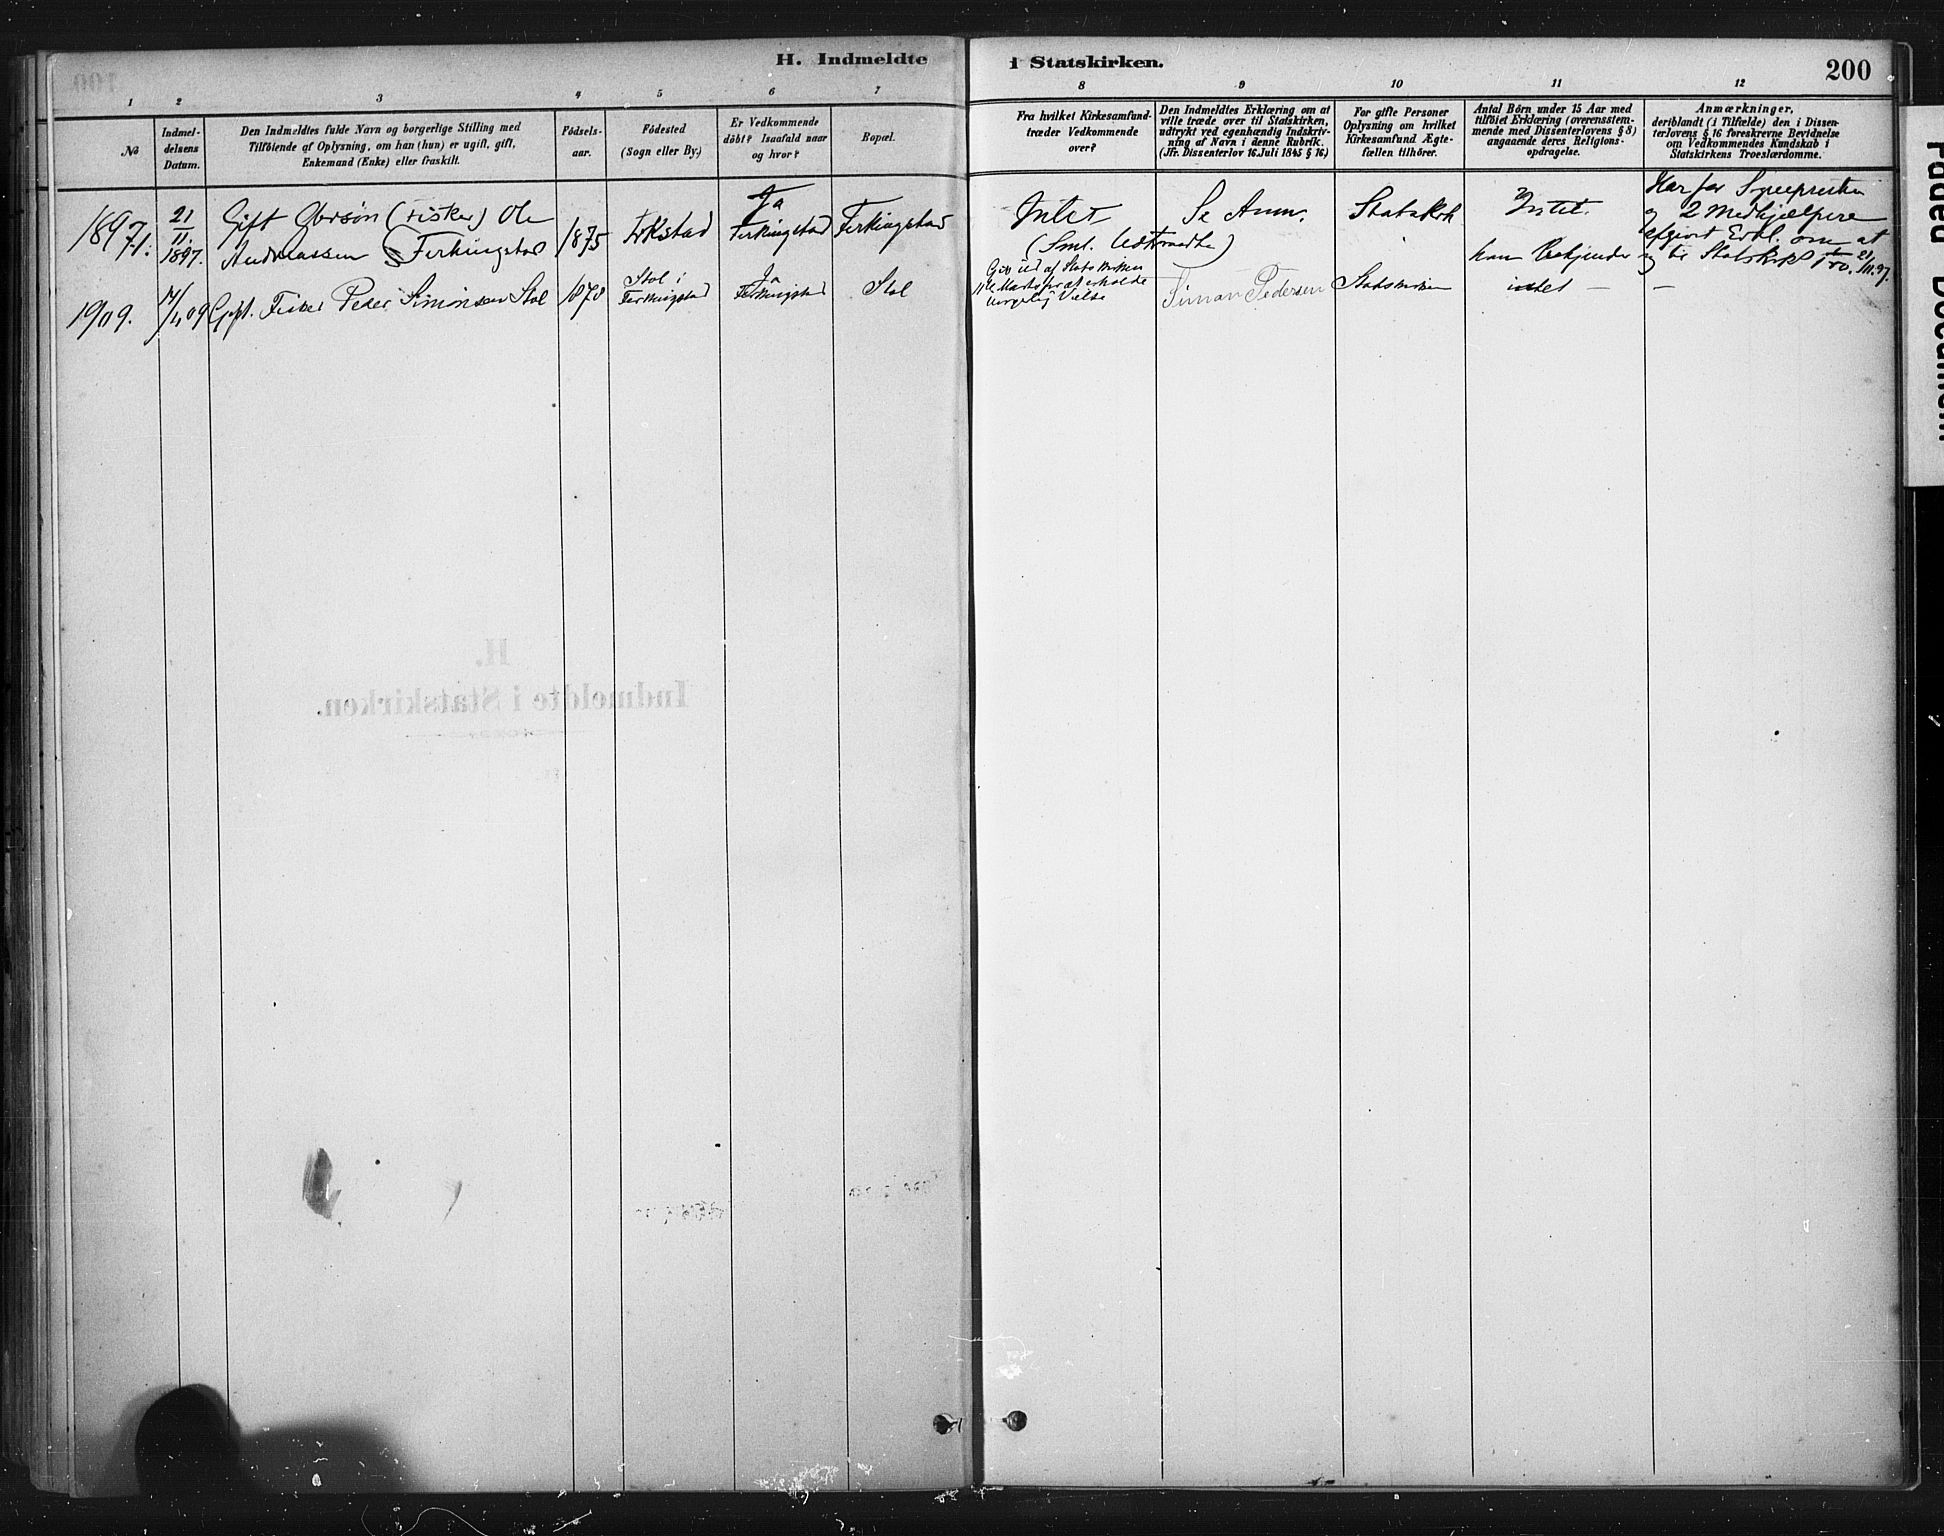 H. Indmeldte i Statskirken.
200
1 2 3 4 5 6 7 8 9 10 11 12
No
Indmel-
delsens
Datum.
Den Indmeldtes fulde Navn og borgerlige Stilling med
Tilföiende af Oplysning, om han (hun) er ugift, gift,
Enkemand (Enke) eller fraskilt.
Födsels-
aar.
Födested
(Sogn eller By.)
Er Vedkommende
döbt? Isaafald naar
og hvor?
Bopæl.
Fra hvilket Kirkesamfund
træder Vedkommende
over?
Den Indmeldtes Erklæring om at
ville træde over til Statskirken,
udtrykt ved egenhændig Indskriv-
ning af Navn i denne Rubrik.
(Jfr. Dissenterlov 16. Juli 1845 § 16.)
For gifte Personer
Oplysning om hvilket
Kirkesamfund Ægte-
fællen tilhörer.
Antal Börn under 15 Aar med
tilföiet Erklæring (overensstem-
mende med Dissenterlovens § 8)
angaaende deres Religions-
opdragelse.
Anmærkninger,
deriblandt (i Tilfælde) den i Dissen-
terlovens § 16 foreskrevne Bevidnelse
om Vedkommendes Kundskab i
Statskirkens Troeslærdomme.
1897
1.
21
11
1897.
Gift (Fisker) Ole
Andreassen Ferkingstad
1875
Ja
Ferkingstad
Ferkingstad
Intet
(Sml. Udtraadte)
Se Anm.
Statskirk
Intet.
Har for Sognepresten
og 2 Medhjælpere
afgivet Erkl. om at
han bekjender
sig til Statskirk Tro, 21/11.97.
1909.
09
Gift. Fisker Peder Simonsen Stol
1878
Stol i
Ferkingstad
Ja
Ferkingstad
Stol
Gik ud af Statskirken
for at erholde
borgerlig Vielse
Simon Pedersen
Statskirken
intet —
—
H.
Indmeldte i Statskirken.
Faded Document